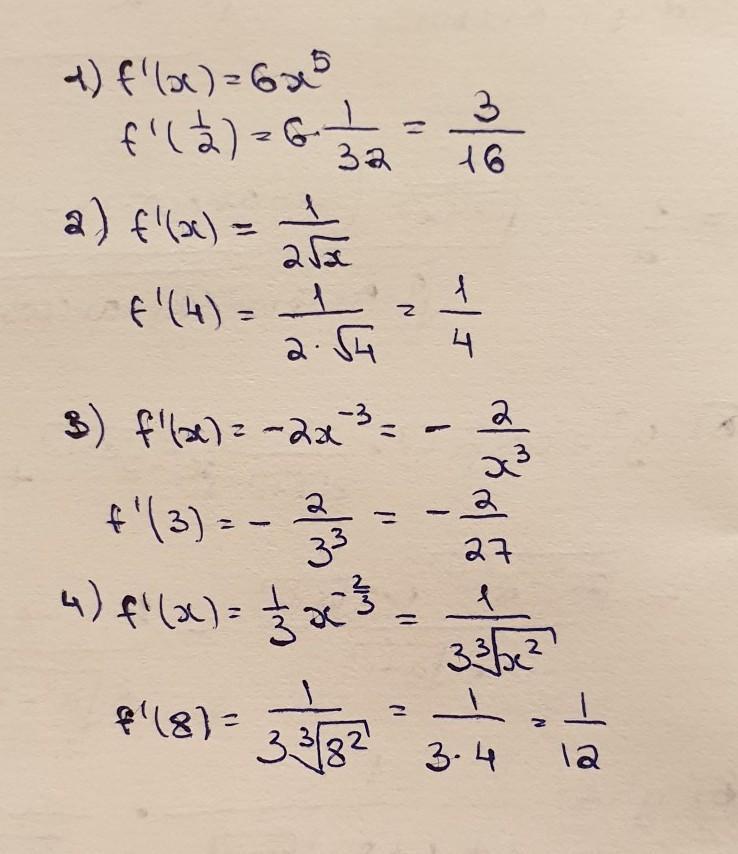 1) f'(x) = 6x⁵
f'(1/2) = 6 · 1/32 = 3/16
2) f'(x) = 1/(2√x)
f'(4) = 1/(2 · √4) = 1/4
3) f'(x) = -2x⁻³ = - 2/x³
f'(3) = - 2/3³ = - 2/27
4) f'(x) = 1/3 x^(-2/3) = 1/(3∛(x²))
f'(8) = 1/(3∛(8²)) = 1/(3·4) = 1/12